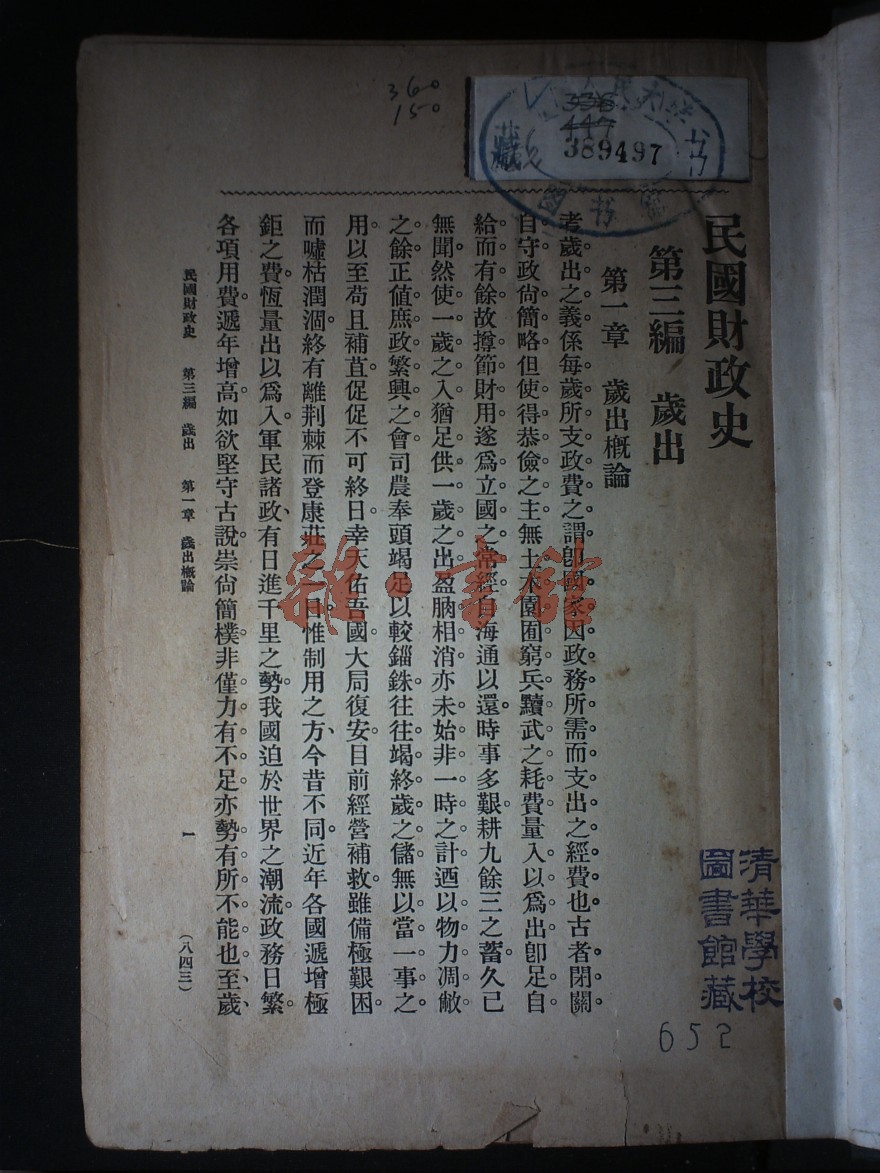 360
150
336
447
389497
藏
书
书
民國財政史
第三編 歲出
第一章 歲出概論
考歲出之義係每歲所支政費之謂卽國家因政務所需而支出之經費也古者閉關
自守政尙簡略但使得恭儉之主無土木園囿窮兵黷武之耗費量入以爲出卽足自
給而有餘故撙節財用遂爲立國之常經自海通以還時事多艱耕九餘三之蓄久已
無聞然使一歲之入猶足供一歲之出盈朒相消亦未始非一時之計迺以物力凋敝
之餘正値庶政繁興之會司農奉頭竭足以較錙銖往往竭終歲之儲無以當一事之
用以至苟且補苴促促不可終日幸天佑吾國大局復安目前經營補救雖備極艱困
而噓枯潤涸終有離荆棘而登康莊之一日惟制用之方今昔不同近年各國遞增極
鉅之費恆量出以爲入軍民諸政有日進千里之勢我國迫於世界之潮流政務日繁
各項用費遞年增高如欲堅守古說崇尙簡樸非僅力有不足亦勢有所不能也至歲
民國財政史 第三編 歲出 第一章 歲出概論 一 (八四三)
雜·書館
清華學校
圖書館藏
652